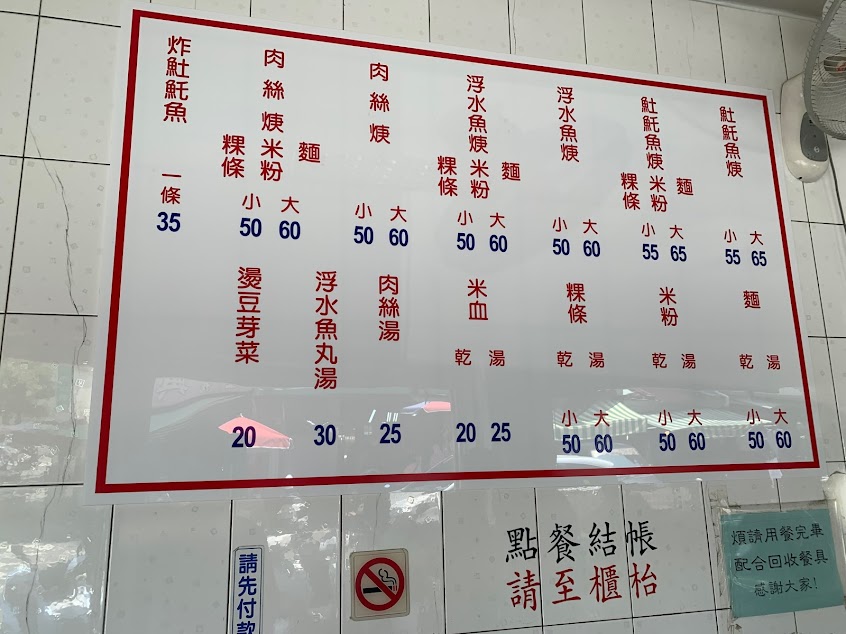 𩵚魠魚焿
小 大
55 65
𩵚魠魚焿 米粉 麵 粿條
小 大
55 65
浮水魚焿
小 大
50 60
浮水魚焿 米粉 麵 粿條
小 大
50 60
肉絲焿
小 大
50 60
肉絲焿 米粉 麵 粿條
小 大
50 60
炸𩵚魠魚
一條
35
麵
乾 湯
小 大
50 60
米粉
乾 湯
小 大
50 60
粿條
乾 湯
小 大
50 60
米血
乾 湯
20 25
肉絲湯
25
浮水魚丸湯
30
燙豆芽菜
20
點餐結帳
請至櫃枱
請先付款
煩請用餐完畢
配合回收餐具
感謝大家!